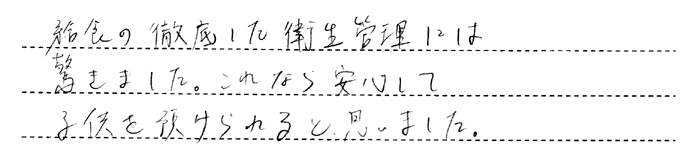 給食の徹底した衛生管理には
驚きました。これなら安心して
子供を預けられると思いました。